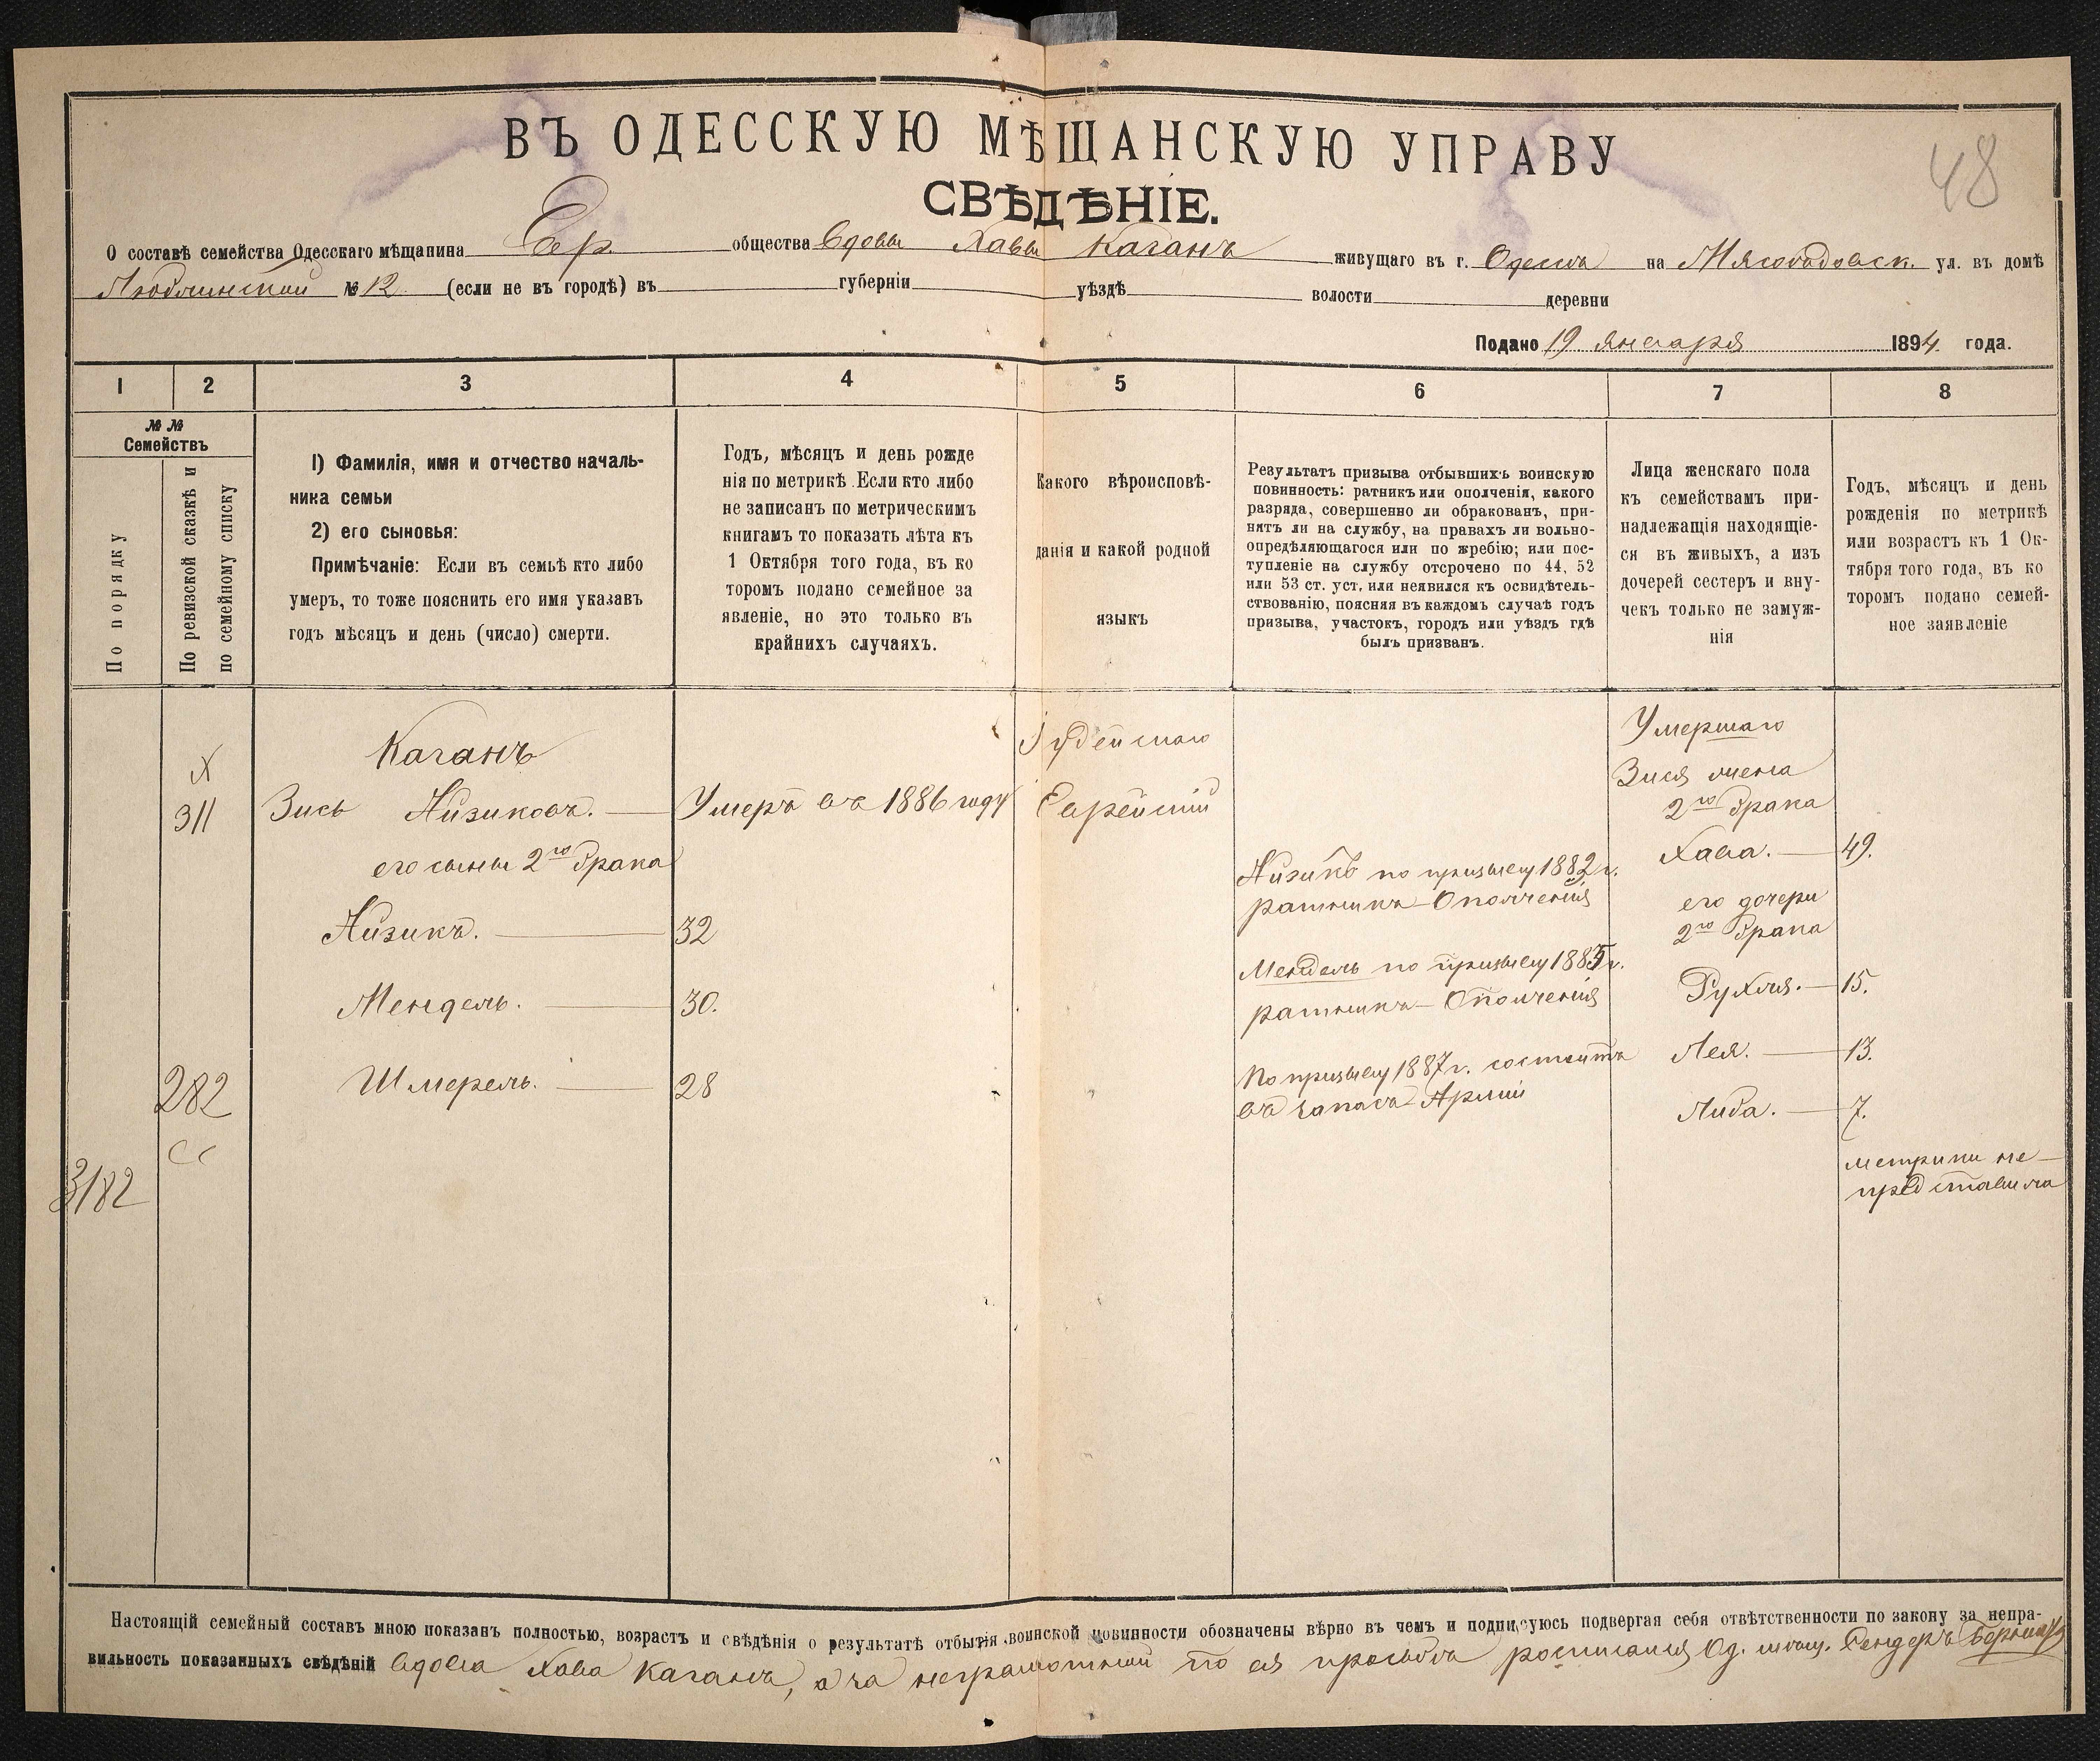 48
ВЪ ОДЕССКУЮ МѢЩАНСКУЮ УПРАВУ
СВѢДѢНІЕ.
О составѣ семейства Одесскаго мѣщанина Евр. общества вдовы Хавы Каганъ живущаго въ г. Одессѣ на Мясоѣдовск. ул. въ домѣ
№ 12 (если не въ городѣ) въ губерніи уѣздѣ волости деревни
Подано 19 января 1894 года.
1 2 3 4 5 6 7 8
№ №
Семействъ
По порядку
По ревизской сказкѣ и
по семейному списку
1) Фамилія, имя и отчество началь-
ника семьи
2) его сыновья:
Примѣчаніе: Если въ семьѣ кто либо
умеръ, то тоже пояснить его имя указавъ
годъ мѣсяцъ и день (число) смерти.
Годъ, мѣсяцъ и день рожде
нія по метрикѣ. Если кто либо
не записанъ по метрическимъ
книгамъ то показать лѣта къ
1 Октября того года, въ ко
торомъ подано семейное за
явленіе, но это только въ
крайнихъ случаяхъ.
Какого вѣроисповѣ-
данія и какой родной
языкъ
Результатъ призыва отбывшихъ воинскую
повинность: ратникъ или ополченія, какого
разряда, совершенно ли обракованъ, при-
нятъ ли на службу, на правахъ ли вольно-
опредѣляющагося или по жребію; или пос-
тупленіе на службу отсрочено по 44, 52
или 53 ст. уст. или неявился къ освидѣтель-
ствованію, поясняя въ каждомъ случаѣ годъ
призыва, участокъ, городъ или уѣздъ гдѣ
былъ призванъ.
Лица женскаго пола
къ семействамъ при-
надлежащія находящіе-
ся въ живыхъ, а изъ
дочерей сестеръ и вну-
чекъ только не замуж-
нія
Годъ, мѣсяцъ и день
рожденія по метрикѣ
или возрастъ къ 1 Ок-
тября того года, въ ко
торомъ подано семей-
ное заявленіе
Х
311
282
3182
Каганъ
Зись Айзиковъ. — Умеръ въ 1886 году
его сыны 2го брака
Айзикъ. — 32
Мендель. — 30.
Шмерель. — 28
Іудейскаго
Еврейскій
Айзикъ по призыву 1882 г.
ратникъ Ополченія
Мендель по призыву 1885 г.
ратникъ Ополченія
По призыву 1887 г. состоитъ
въ запасѣ Арміи
Умершаго
Зися жена
2го брака
Хава. — 49.
его дочери
2го брака
Рухля. — 15.
Лея. — 13.
Либа. — 7.
метрики не
представила
Настоящій семейный составъ мною показанъ полностью, возрастъ и свѣдѣнія о результатѣ отбытія воинской повинности обозначены вѣрно въ чемъ и подписуюсь подвергая себя отвѣтственности по закону за непра-
вильность показанныхъ свѣдѣній вдова Хава Каганъ, а за неграмотной по ея просьбѣ росписался Од. мѣщ.